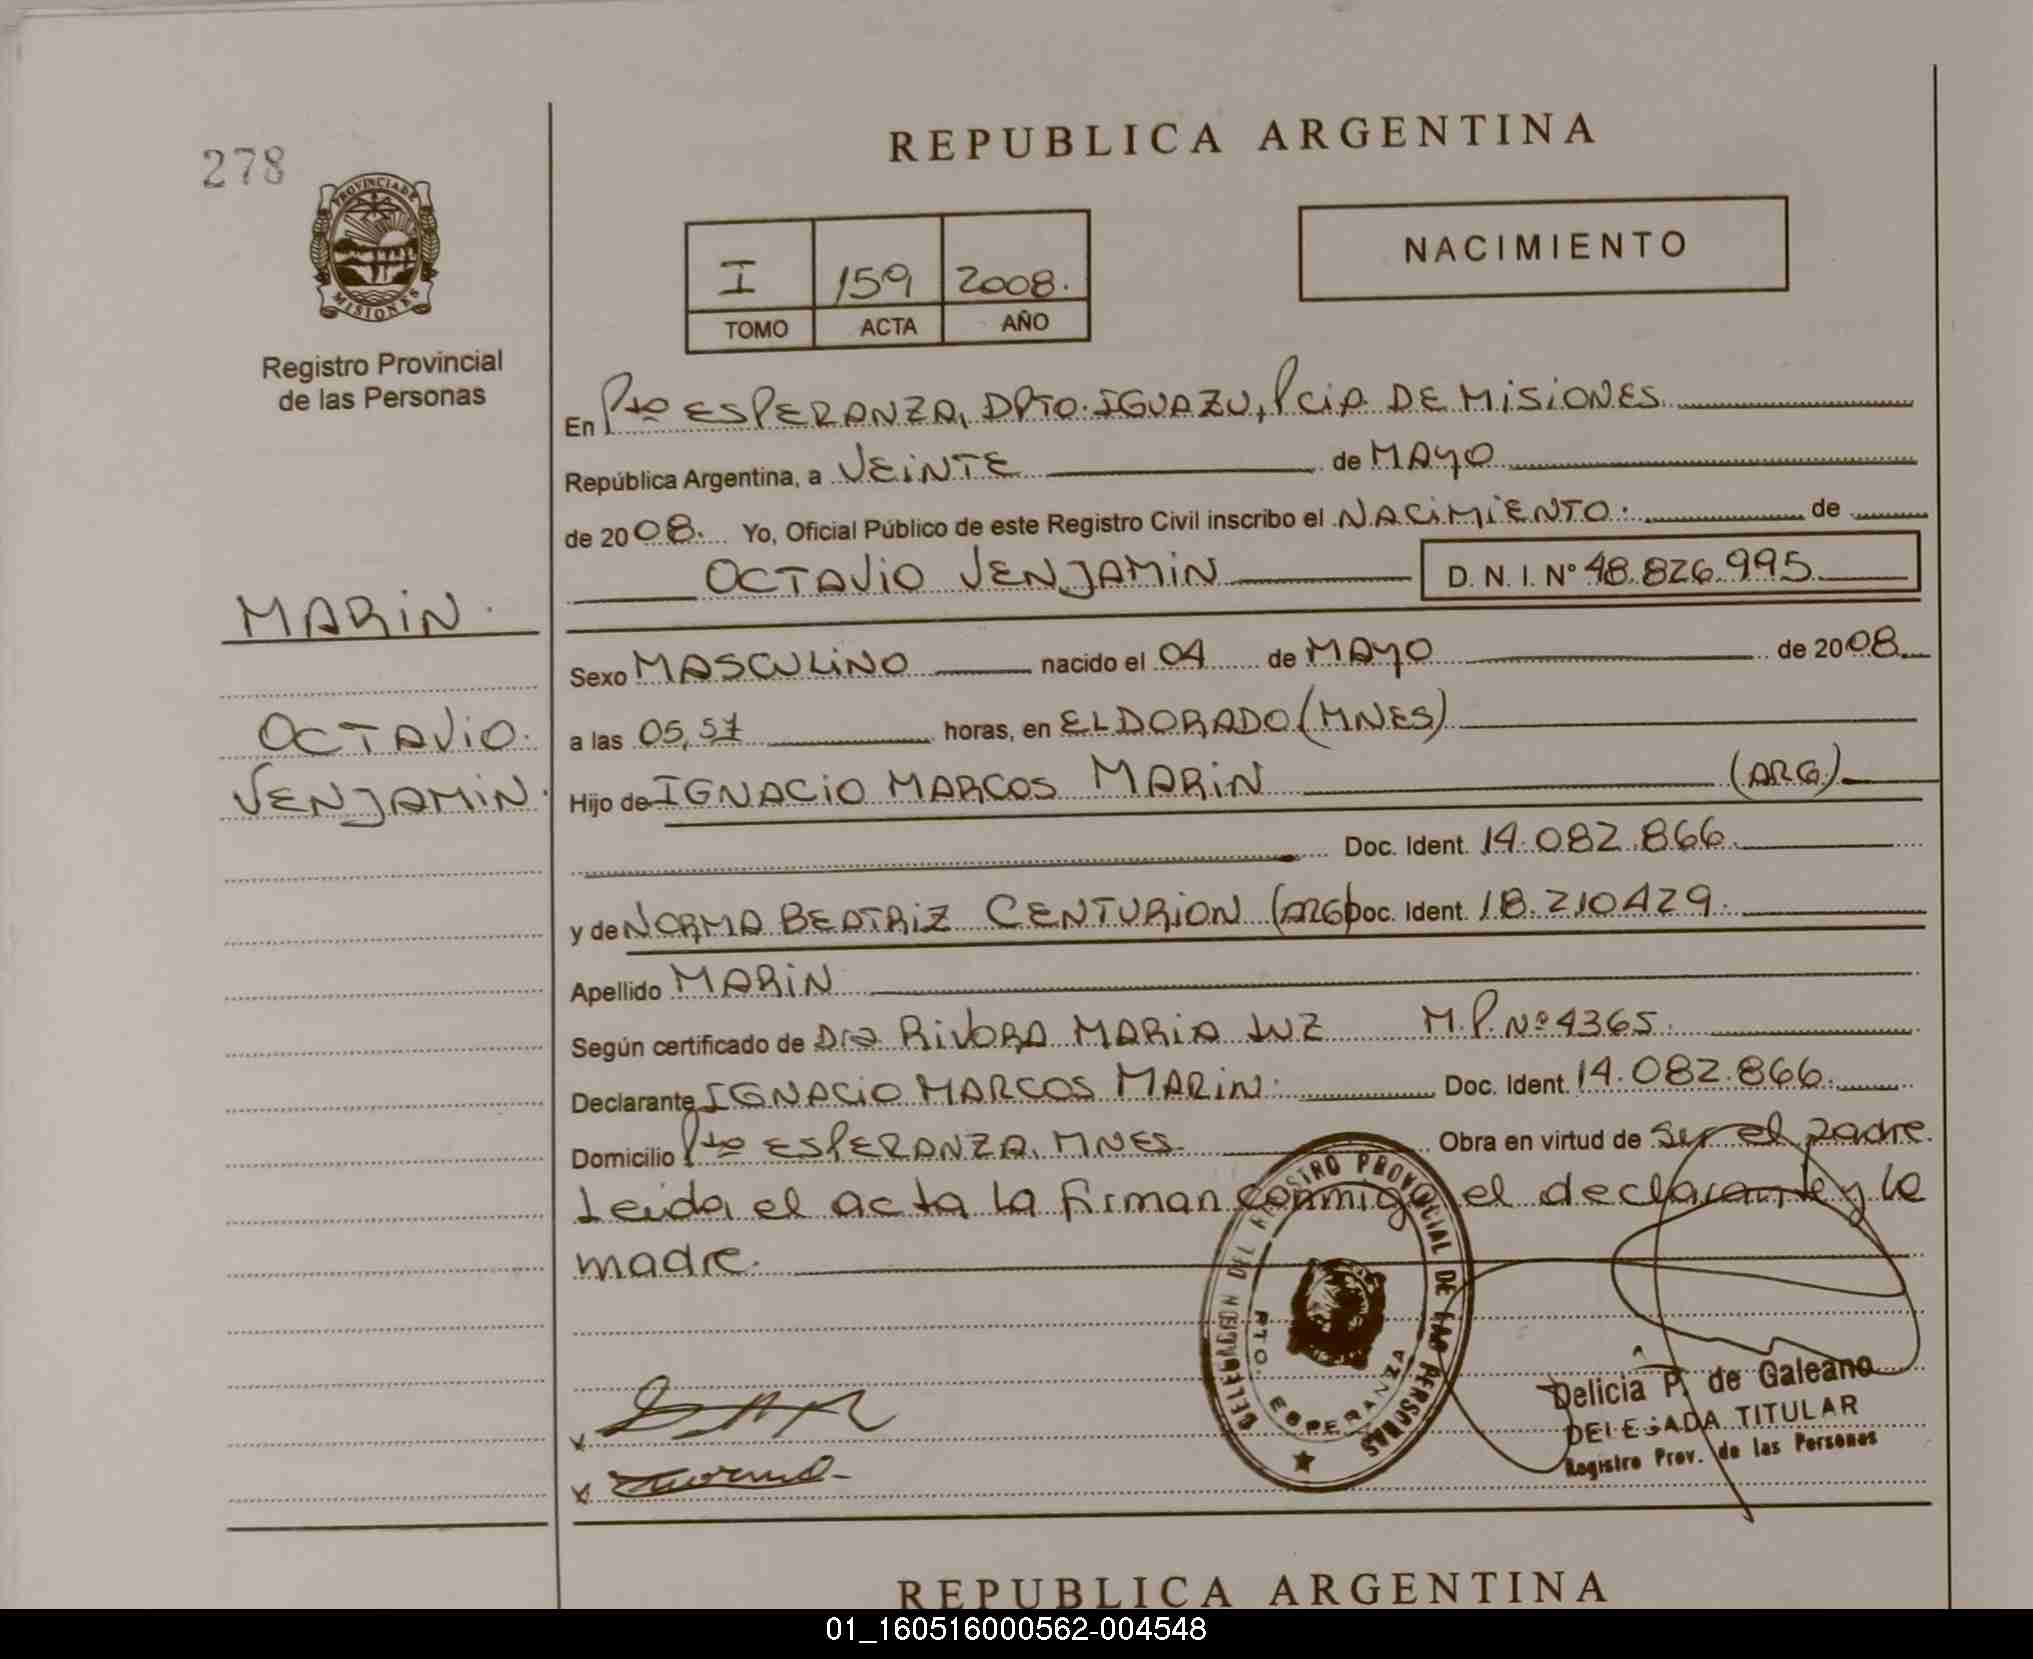 278
PROVINCIA DE
MISIONES
Registro Provincial
de las Personas
MARIN.
OCTAVIO.
VENJAMIN.
REPUBLICA ARGENTINA
I 159 2008.
TOMO ACTA AÑO
NACIMIENTO
En Pto ESPERANZA, DPTO. IGUAZU, Pcia DE MISIONES
República Argentina, a VEINTE de MAYO
de 2008. Yo, Oficial Público de este Registro Civil inscribo el NACIMIENTO. de
OCTAVIO VENJAMIN D. N. I. Nº 48.826.995
Sexo MASCULINO nacido el 04 de MAYO de 2008
a las 05,57 horas, en ELDORADO (MNES)
Hijo de IGNACIO MARCOS MARIN (ARG.)
Doc. Ident. 14.082.866
y de NORMA BEATRIZ CENTURION (ARG) Doc. Ident. 18.210429.
Apellido MARIN
Según certificado de Dra RIVORA MARIA LUZ M.P. Nº 4365.
Declarante IGNACIO MARCOS MARIN. Doc. Ident. 14.082.866.
Domicilio Pto ESPERANZA, MNES. Obra en virtud de ser el padre.
Leida el acta la firman conmigo el declarante y la
madre.
DELEGACION DEL REGISTRO PROVINCIAL DE LAS PERSONAS
PTO. ESPERANZA
Delicia P. de Galeano
DELEGADA TITULAR
Registro Prov. de las Personas
REPUBLICA ARGENTINA
01_160516000562-004548